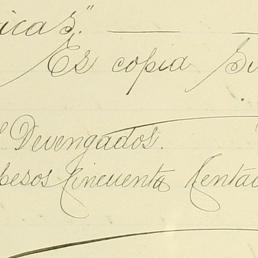 icas."
Es copia Si
Devengados.
pesos Cincuenta Centa